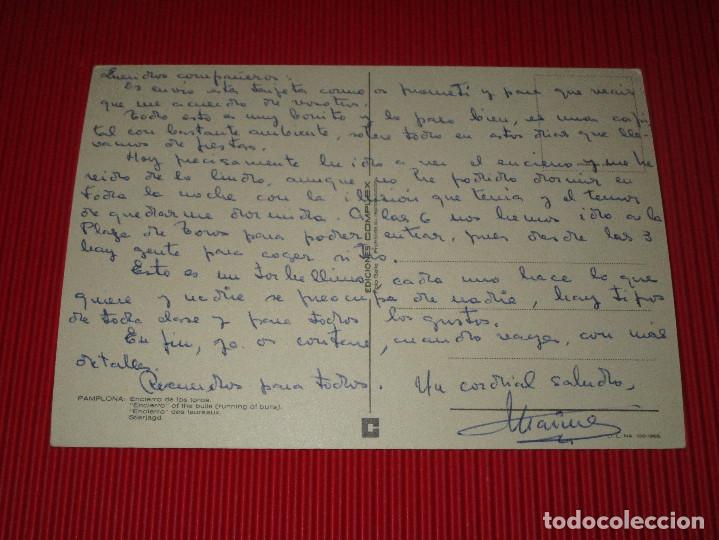 Queridos compañeros:
Os envío esta tarjeta como os prometí y para que veáis
que me acuerdo de vosotros.
Todo esto es muy bonito y lo paso bien, es una capi
tal con bastante ambiente, sobre todo en estos días que lle-
vamos de fiestas.
Hoy precisamente he ido a ver el encierro y me he
reído de lo lindo, aunque no he podido dormir en
toda la noche con la ilusión que tenía y el temor
de quedarme dormida. A las 6 nos hemos ido a la
Plaza de Toros para poder entrar, pues desde las 3
hay gente para coger sitio.
Esto es un torbellino, cada uno hace lo que
quiere y nadie se preocupa de nadie, hay tipos
de toda clase y para todos los gustos.
En fin, ya os contaré, cuando vaya, con más
detalles.
Recuerdos para todos. Un cordial saludo,
PAMPLONA: Encierro de los toros.
"Encierro" of the bulls (running of bulls).
"Encierro" des taureaux.
Stierjagd.
EDICIONES COMPUEX
C
todocoleccion
todocoleccion.net